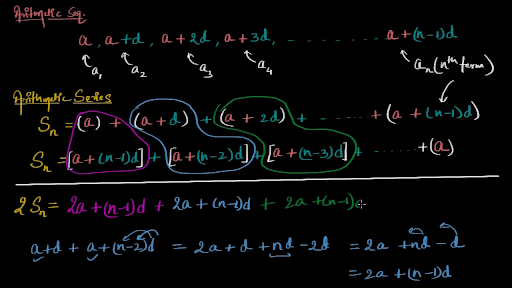 Arithmetic Seq.
a, a+d, a+2d, a+3d, ............ a+(n-1)d
a₁ a₂ a₃ a₄ aₙ(nᵗʰ term)
Arithmetic Series
Sₙ = (a) + (a+d) + (a+2d) + ....... + (a+(n-1)d)
Sₙ = [a+(n-1)d] + [a+(n-2)d] + [a+(n-3)d] + ....... +(a)
2Sₙ = 2a+(n-1)d + 2a+(n-1)d + 2a+(n-1)d
a+d + a+(n-2)d = 2a+d+nd-2d = 2a+nd-d
= 2a+(n-1)d